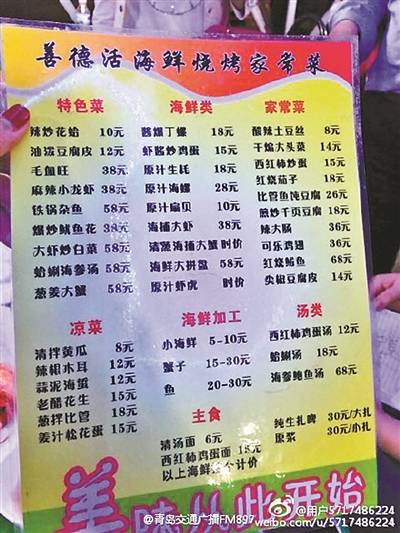 善德活海鲜烧烤家常菜
特色菜
辣炒花蛤 10元
油泼豆腐皮 12元
毛血旺 38元
麻辣小龙虾 38元
铁锅杂鱼 58元
爆炒鱿鱼花 38元
大虾炒白菜 58元
蛤蜊海参汤 58元
葱姜大蟹 58元
海鲜类
酱爆丁螺 18元
虾酱炒鸡蛋 15元
原汁生蚝 18元
原汁海螺 28元
原汁扇贝 10元
海捕大虾 38元
清蒸海捕大蟹 时价
海鲜大拼盘 58元
原汁虾虎 时价
家常菜
酸辣土豆丝 8元
干煸大头菜 14元
西红柿炒蛋 15元
红烧茄子 18元
比管鱼炖豆腐 26元
煎炒千页豆腐 18元
辣大肠 36元
可乐鸡翅 36元
红烧鲅鱼 68元
尖椒豆腐皮 14元
凉菜
清拌黄瓜 8元
辣根木耳 12元
蒜泥海蜇 12元
老醋花生 15元
葱拌比管 18元
姜汁松花蛋 15元
海鲜加工
小海鲜 5-10元
蟹子 15-30元
鱼 20-30元
汤类
西红柿鸡蛋汤 12元
蛤蜊汤 18元
海参鲍鱼汤 68元
主食
清汤面 6元
西红柿鸡蛋面 15元
以上海鲜按个计价
纯生扎啤 30元/大扎
原浆 30元/小扎
美味从此开始
@用户5717486224
@青岛交通广播FM897 weibo.com/u/5717486224